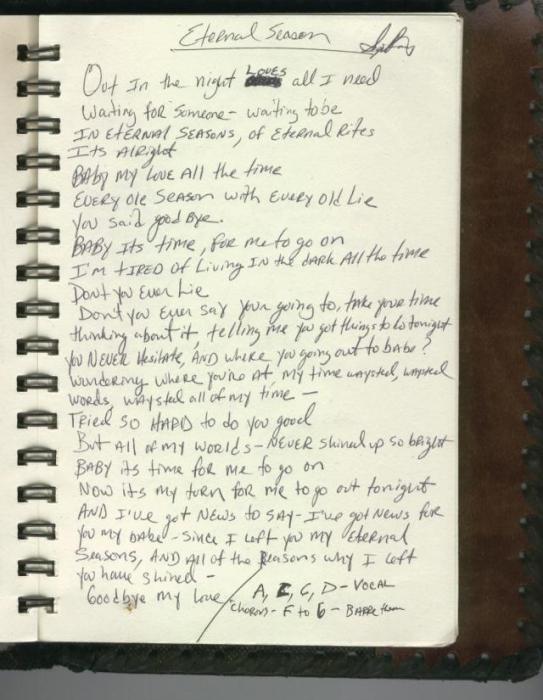 Eternal Season
Out In the night LOVES all I need
Waiting for Someone - waiting to be
IN ETERNAL SEASONS, of Eternal Rites
Its Alright
BABy my Love All the time
EVERY OLE SEASON with EVERY OLd Lie
You said good Bye.
BABY Its time, for me to go on
I'm TIRED of Living IN the dark All the time
Dont you Ever Lie
Dont you Ever say your going to, take your time
thinking about it, telling me you got things to do tonight
You NEVER Hesitate, AND where you going out to babe?
Wundering where you're At, my time waysted, waysted
words, waysted all of my time -
Tried SO HARD to do you good
But All of my WORLDS - NEVER shined up so bright
BABY its time for me to go on
Now its my turn for me to go out tonight
AND I've got News to SAY - I've got News for
you my babe - since I Left you my Eternal
Seasons, AND All of the Reasons why I Left
you have shined -
Goodbye my Love A, E, G, D - VOCAL
Chorus - F to G - BARRE